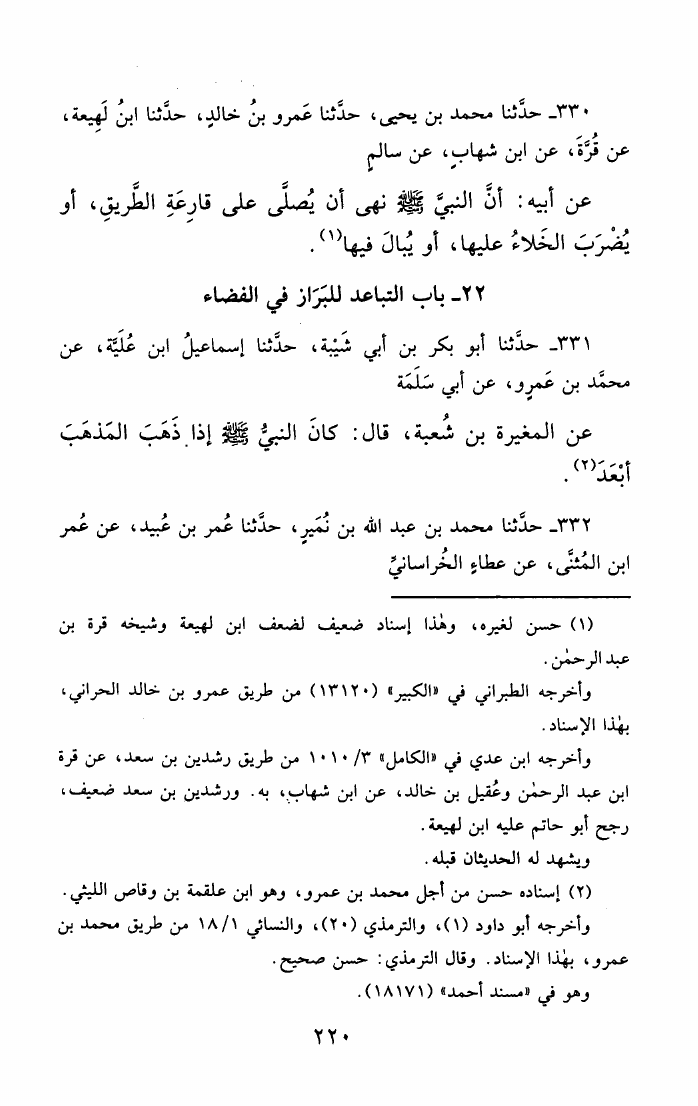 ٣٣٠ـ حدَّثنا محمد بن يحيى، حدَّثنا عَمرو بنُ خالدٍ، حدَّثنا ابنُ لَهِيعة،
عن قُرَّةَ، عن ابن شهابٍ، عن سالمٍ
عن أبيه: أنَّ النبيَّ ﷺ نهى أن يُصلَّى على قارِعَةِ الطَّريقِ، أو
يُضْرَبَ الخَلاءُ عليها، أو يُبالَ فيها(١).
٢٢ـ باب التباعد للبَرَاز في الفضاء
٣٣١ـ حدَّثنا أبو بكر بن أبي شَيْبة، حدَّثنا إسماعيلُ ابن عُلَيَّة، عن
محمَّد بن عَمرٍو، عن أبي سَلَمَة
عن المغيرة بن شُعبة، قال: كانَ النبيُّ ﷺ إذا ذَهَبَ المَذهَبَ
أَبْعَدَ(٢).
٣٣٢ـ حدَّثنا محمد بن عبد الله بن نُمَيرٍ، حدَّثنا عُمر بن عُبيد، عن عُمر
ابن المُثنَّى، عن عطاءٍ الخُراسانيِّ
(١) حسن لغيره، وهٰذا إسناد ضعيف لضعف ابن لهيعة وشيخه قرة بن
عبد الرحمٰن.
وأخرجه الطبراني في «الكبير» (١٣١٢٠) من طريق عمرو بن خالد الحراني،
بهٰذا الإسناد.
وأخرجه ابن عدي في «الكامل» ١٠١٠/٣ من طريق رشدين بن سعد، عن قرة
ابن عبد الرحمٰن وعُقيل بن خالد، عن ابن شهاب، به. ورشدين بن سعد ضعيف،
رجح أبو حاتم عليه ابن لهيعة.
ويشهد له الحديثان قبله.
(٢) إسناده حسن من أجل محمد بن عمرو، وهو ابن علقمة بن وقاص الليثي.
وأخرجه أبو داود (١)، والترمذي (٢٠)، والنسائي ١٨/١ من طريق محمد بن
عمرو، بهٰذا الإسناد. وقال الترمذي: حسن صحيح.
وهو في «مسند أحمد» (١٨١٧١).
٢٢٠